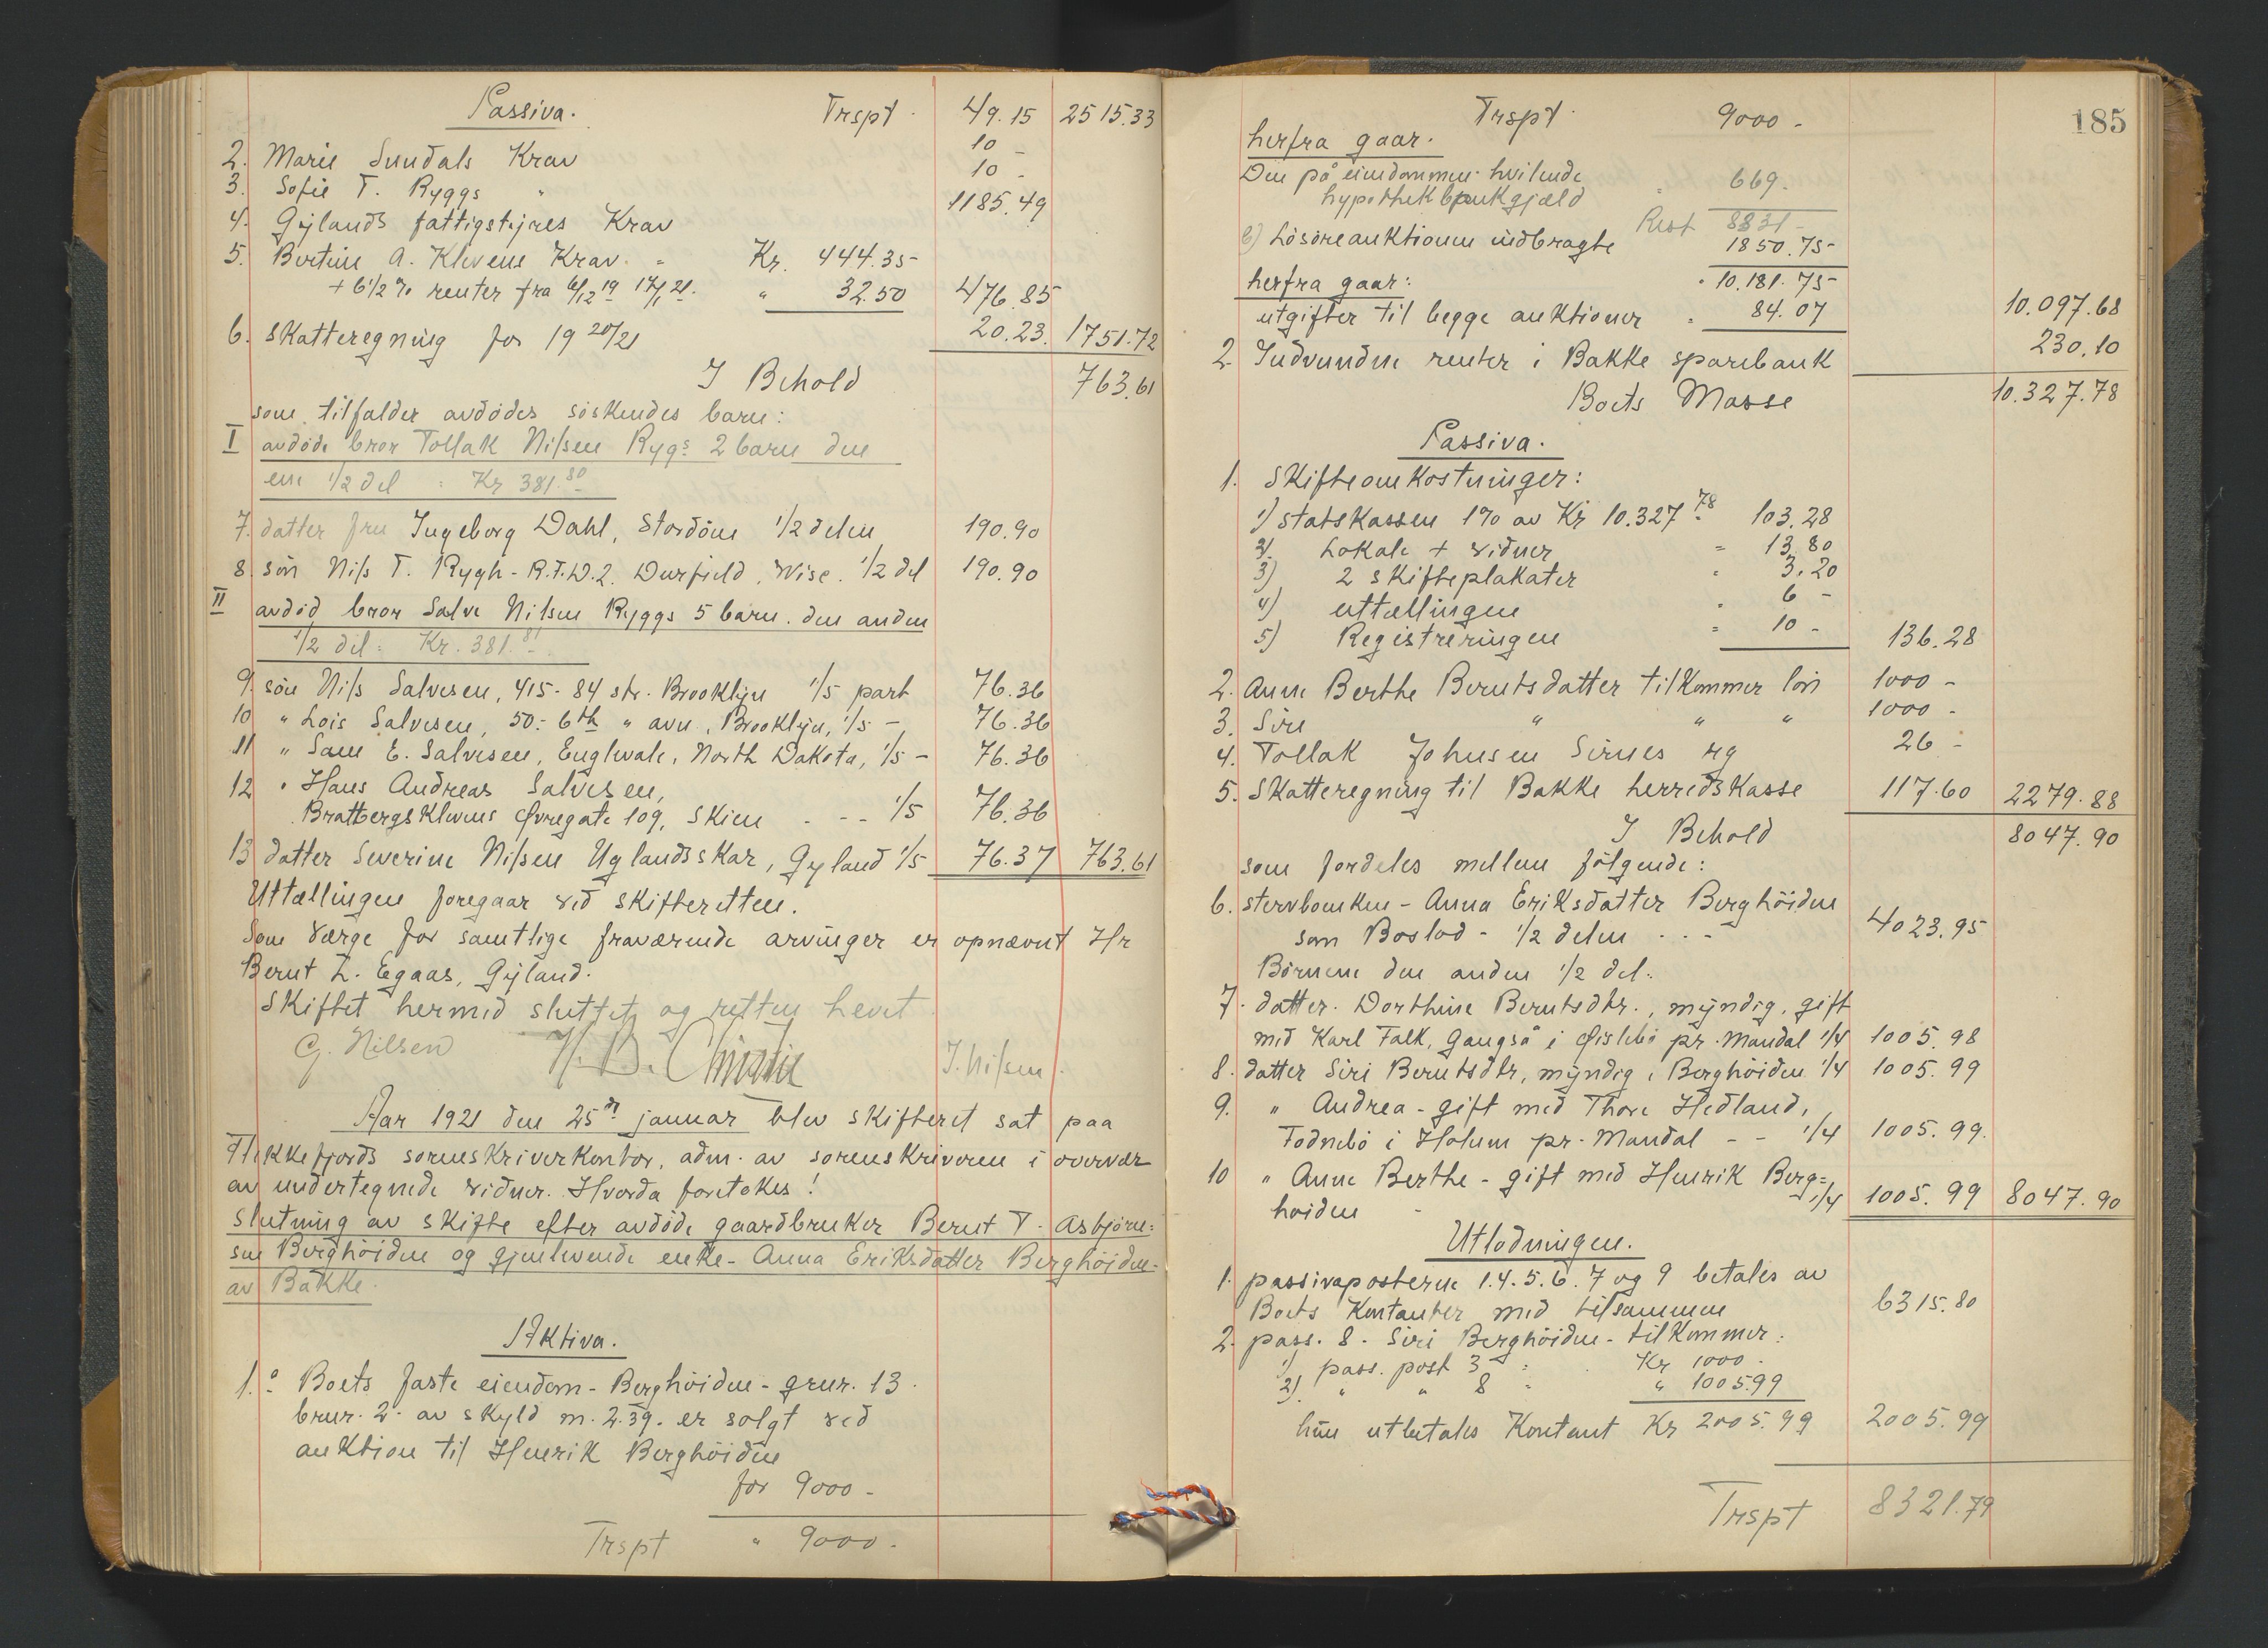 Passiva. Trspt. 49.15 2515.33
2. Marie Sundals Krav 10 -
3. Sofie T. Ryggs " 10 -
4. Gylands fattigstyres Krav 1185.49
5. Bertine A. Klevens Krav. = Kr. 444.35-
+ 6 1/2 % renter fra 6/12 19 17/1 21. " 32.50 476.85
6. Skatteregning for 19 20/21 20.23. 1751.72
I Behold 763.61
som tilfalder avdödes söskendes barn:
I avdöde bror Tollak Nilsen Rygs 2 barn den
ene 1/2 del : Kr 381.80
7. datter fru Ingeborg Dahl, Stordöen 1/2 delen 190.90
8. sön Nils T. Rygh - R.F.D.2. Durfield, Wise. 1/2 del 190.90
II avdöd bror Salve Nilsen Ryggs 5 barn. den anden
1/2 del = Kr. 381.81
9. sön Nils Salvesen, 415 - 84 str. Brooklyn 1/5 part 76.36
10 " Lois Salvesen, 50 - 6th " avn, Brooklyn, 1/5 - 76.36
11 " Sam E. Salvesen, Englevale, North Dakota, 1/5 - 76.36
12 " Hans Andreas Salvesen,
Brattbergsklevens Øvregate 109, Skien - - - 1/5 76.36
13 datter Severine Nilsen Uglandsskar, Gyland 1/5 76.37 763.61
Uttællingen foregaar ved skifteretten.
Som Værge for samtlige fraværende arvinger er opnævnt Hr
Bernt L. Egaas, Gyland.
Skiftet hermed sluttet og retten hevet
G. Nilsen H. B. Christie J. Nilsen.
Aar 1921 den 25de januar blev skifteret sat paa
Flekkefjords sorenskriverkontor, adm. av sorenskriveren i overvær
av undertegnede vidner. Hvorda foretokes!
Slutning av skifte efter avdöde gaardbruker Bernt T. Asbjörn=
sen Berghöiden og gjenlevende enke - Anna Eriksdatter Berghöiden -
av Bakke.
Aktiva.
1. a Boets faste eiendom - Berghöiden - grnr. 13.
brnr. 2. av skyld m. 2.39. er solgt ved
auktion til Henrik Berghöiden
for 9000 -
Trspt " 9000 -
185
Trspt. 9000 -
herfra gaar.
Den på eiendommen hvilende
hypothekbankgjæld " 669.
Rest 8331 -
b) Lösöreauktionen indbragte 1850.75-
herfra gaar: " 10.181.75-
utgifter til begge auktioner " 84.07 10.097.68
2. Indvundne renter i Bakke sparebank 230.10
Boets Masse 10.327.78
Passiva.
1. Skifteomkostninger:
1) Statskassen 1% av Kr 10.327.78 103.28
2) Lokale + vidner = 13.80
3) 2 skifteplakater " 3.20
4) uttællingen " 6 -
5) Registreringen = 10 - 136.28
2. Anne Berthe Berntsdatter tilkommer lön 1000 -
3. Sire " " " 1000 -
4. Tollak Johnsen Sirnes rg 26 -
5. Skatteregning til Bakke herredskasse 117.60 2279.88
I Behold 8047.90
som fordeles mellem fölgende:
6. stervboenken - Anna Eriksdatter Berghöiden
som Boslod - 1/2 delen - - - 4023.95
Börnene den anden 1/2 del:
7. datter. Dorthine Berntsdtr., myndig, gift
med Karl Falk, Gangså i Øislebö pr. Mandal 1/4 1005.98
8. datter Siri Berntsdtr, myndig, Berghöiden 1/4 1005.99
9. " Andrea - gift med Thore Hedland,
Fodnebö i Holum pr. Mandal - - 1/4 1005.99.
10 " Anne Berthe - gift med Henrik Berg=
höiden - 1/4 1005.99 8047.90
Utlodningen.
1. passivaposterne 1.4.5.6.7 og 9 betales av
Boets Kontanter med tilsammen 6315.80
2. pass. 8. Siri Berghöiden - tilkommer:
1) pass. post 3 = Kr 1000 -
2) " " 8 " " 1005.99
hun utbetales Kontant Kr 2005.99 2005.99
Trspt 8321.79